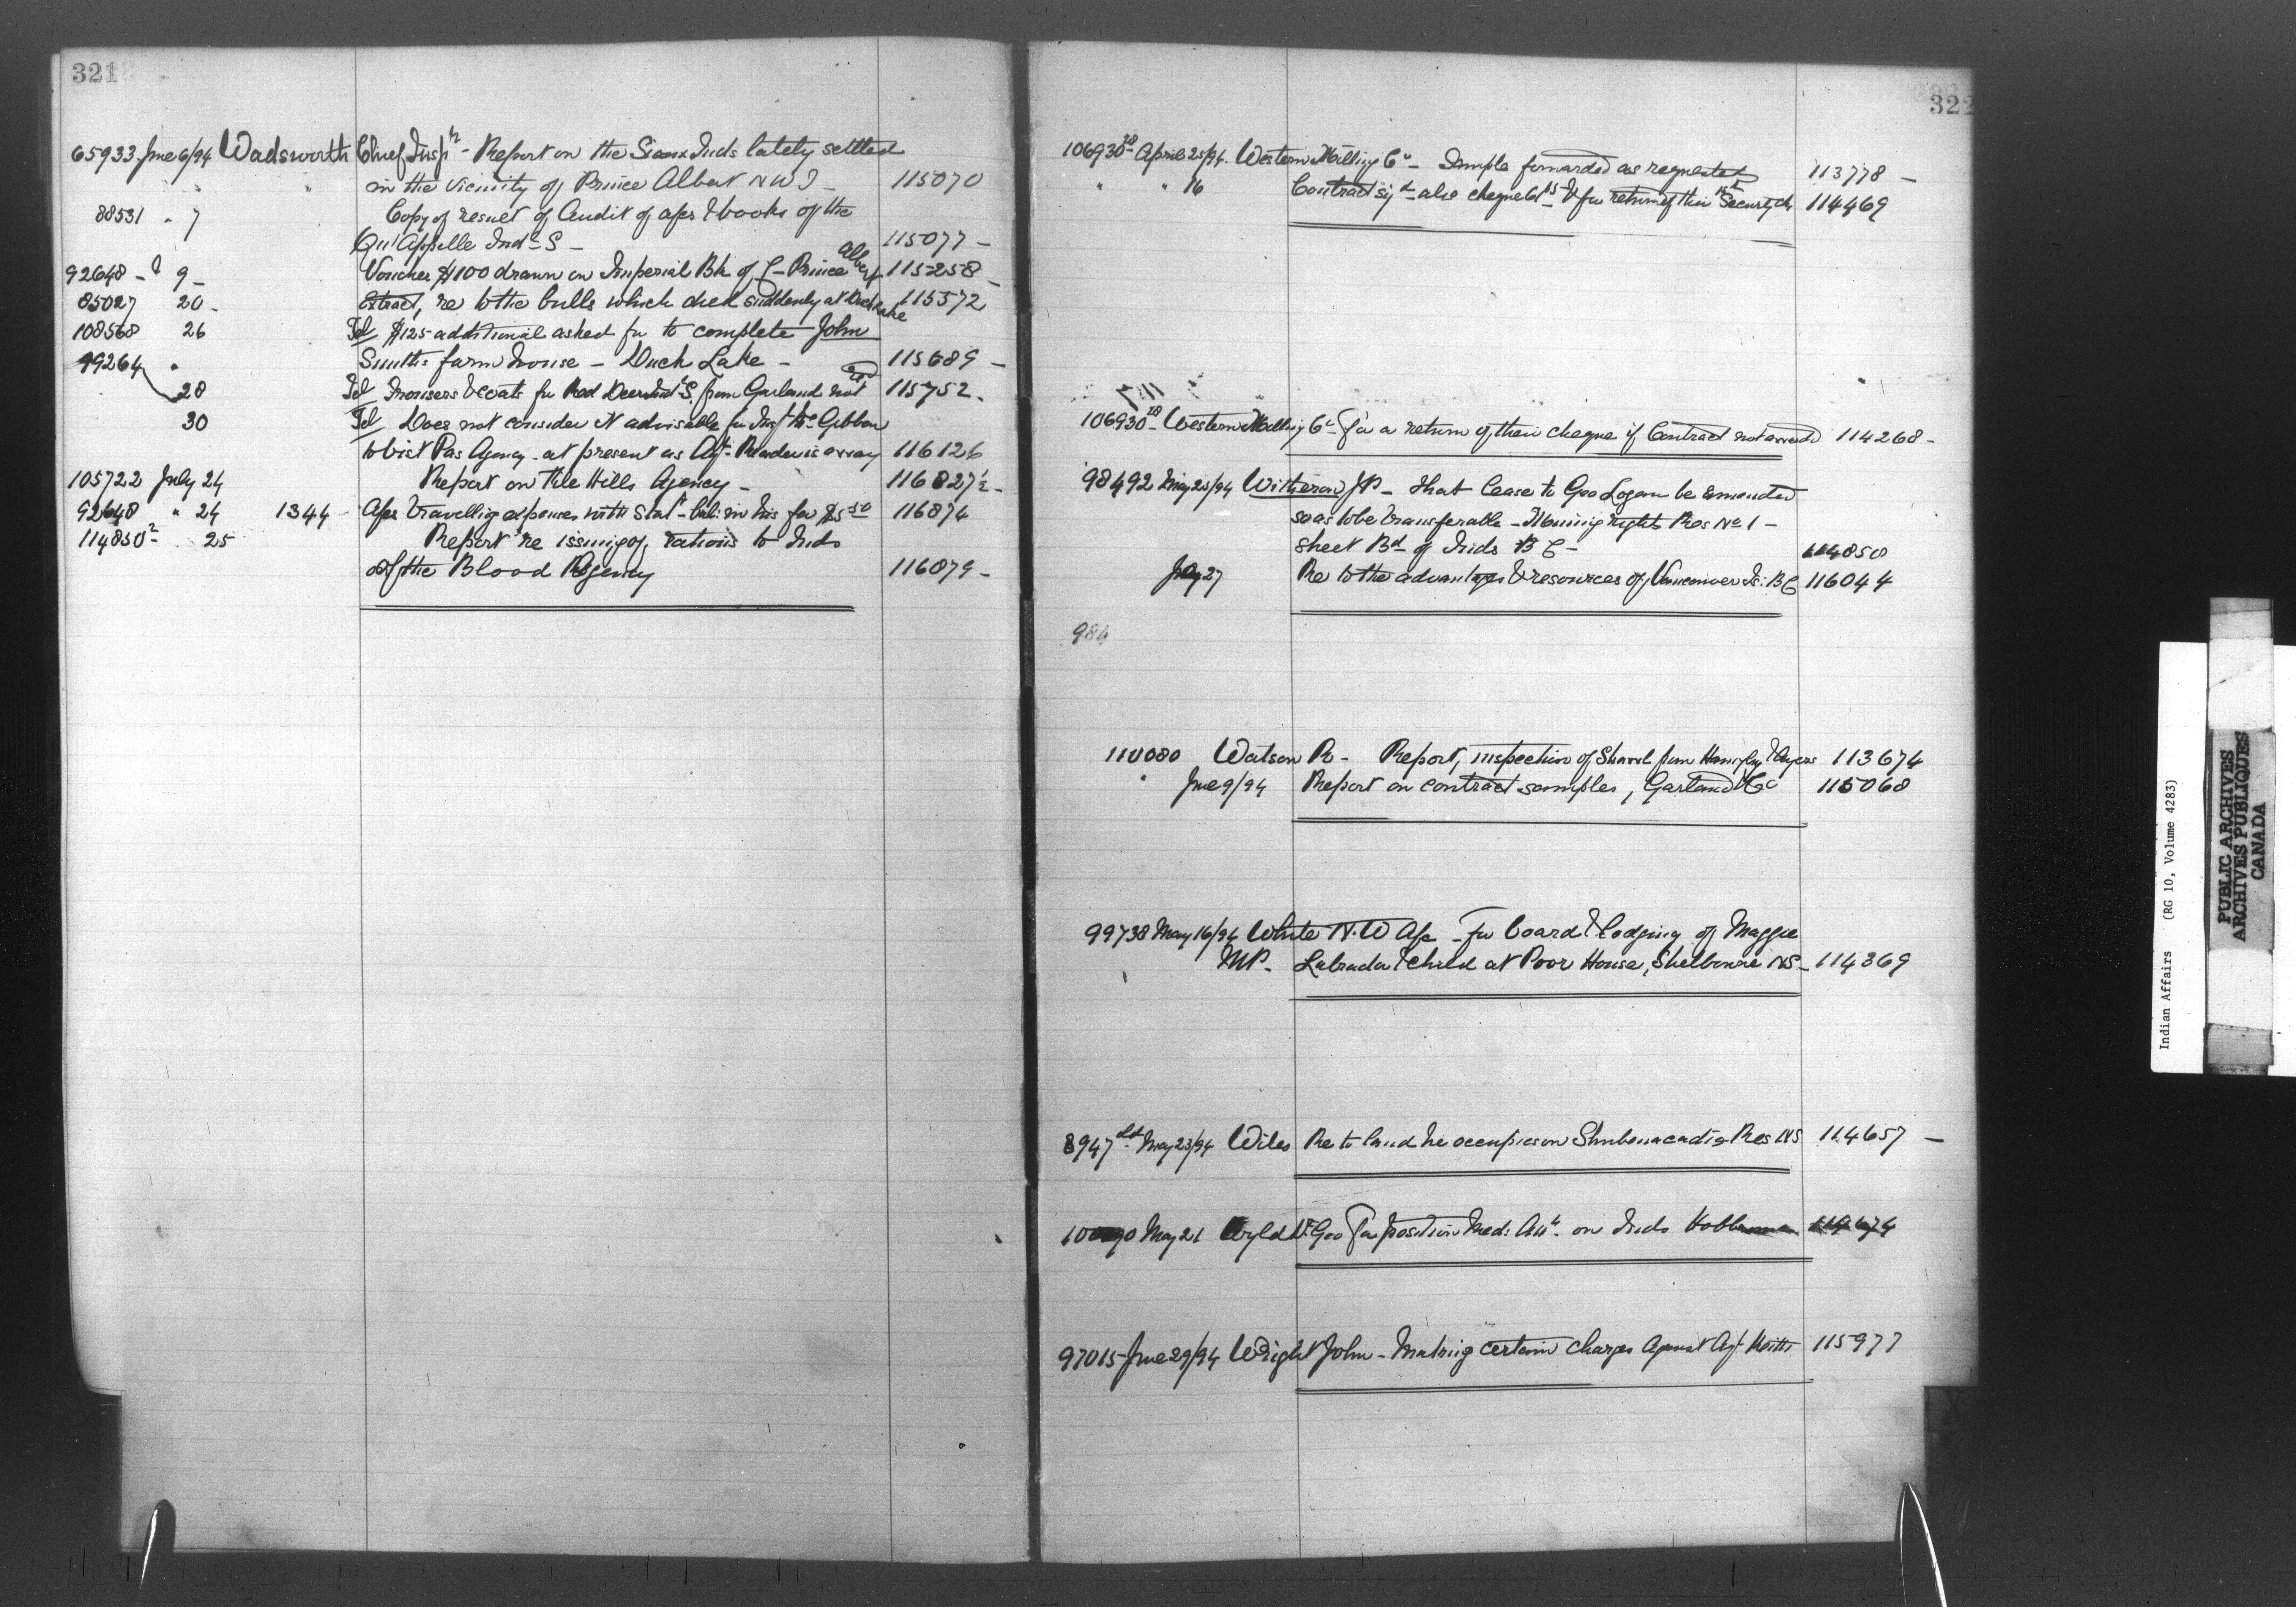 321
65933 June 6/94 Wadsworth Chief Insp r - Report on the Sioux Inds lately settled
in the vicinity of Prince Albert N W T - 115070
88531 " 7 Copy of result of Audit of a/cs & books of the
Qu'Appelle Ind S - 115077 -
92648 - 2 9 - Voucher $100 drawn on Imperial Bk of C - Prince Albert 115258 -
85027 20 - Extract, re to the bulls which died suddenly at Duck Lake 115572
108568 26 Tel $125 additional asked for to complete John
99264 " Smith's farm house - Duck Lake - 115689 -
28 Tel Trousers & coats for Red Deer Ind S. from Garland not 115752 -
30 Tel Does not consider it advisable for Insp McGibbon
to visit Pas Agency - at present as Agt Reader is away 116126
105722 July 24 Report on File Hills Agency - 116827½ -
92648 " 24 1344 - A/cs travelling expenses with Stat - bal: in his fav $5 50 116874
114850 2 " 25 Report re issuing of rations to Inds
of the Blood Agency 116879 -
322
106930 28 April 25/94 Western Milling Co - Sample forwarded as requested 113778 -
" " 16 Contract sig d - also cheque & for return of their Security ch 114469
106930 28 - Western Milling Co - For a return of their cheque if Contract not awarded 114268 -
98492 May 25/94 Witheron J P - that lease to Geo Logan be amended
so as to be transferable - Mining rights Res No 1 -
Sheet Bd of Inds B C - 114850
July 27 Re to the advantages & resources of Vancouver Is: B C 116044
984
110080 Watson R - Report, inspection of Shawls from 113674
" June 9/94 Report on contract samples, Garland & Co 115068
99738 May 16/94 White N. W A/c - for board & lodging of Maggie
MP - Labrador & child at Poor House, Shelbourne NS - 114369
8947 May 23/94 Wiles Re to land he occupies on Shubenacadie Res NS 114657 -
May 21 Wyld Dr Geo For position Med: Att t - on Inds Hobbema
97015 - June 29/94 Wright John - Making certain charges against Agt 115977
Indian Affairs (RG 10, Volume 4283)
PUBLIC ARCHIVES
ARCHIVES PUBLIQUES
CANADA